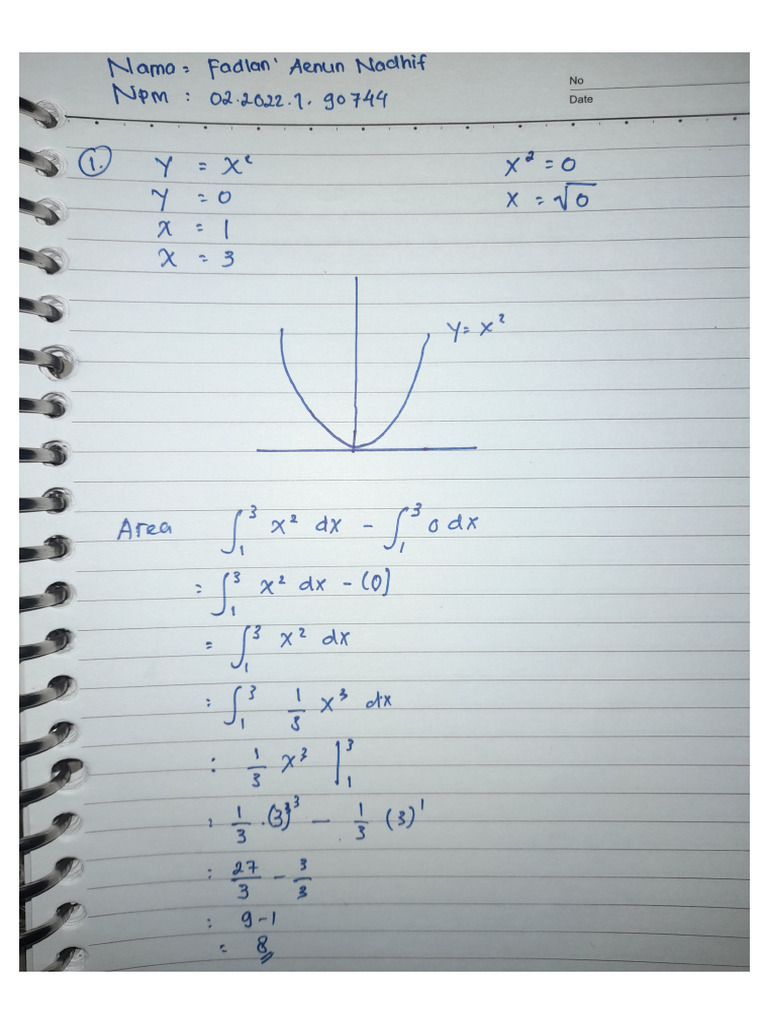 Nama : Fadlan' Aenun Nadhif
Npm : 02.2022.1.90744
No
Date
1. Y = x² x² = 0
Y = 0 x = √0
x = 1
x = 3
Y = x²
Area ∫₁³ x² dx - ∫₁³ 0 dx
= ∫₁³ x² dx - (0)
= ∫₁³ x² dx
: ∫₁³ 1/3 x³ dx
: 1/3 x³ |₁³
: 1/3 . (3)³ - 1/3 (3)¹
: 27/3 - 3/3
: 9 - 1
= 8